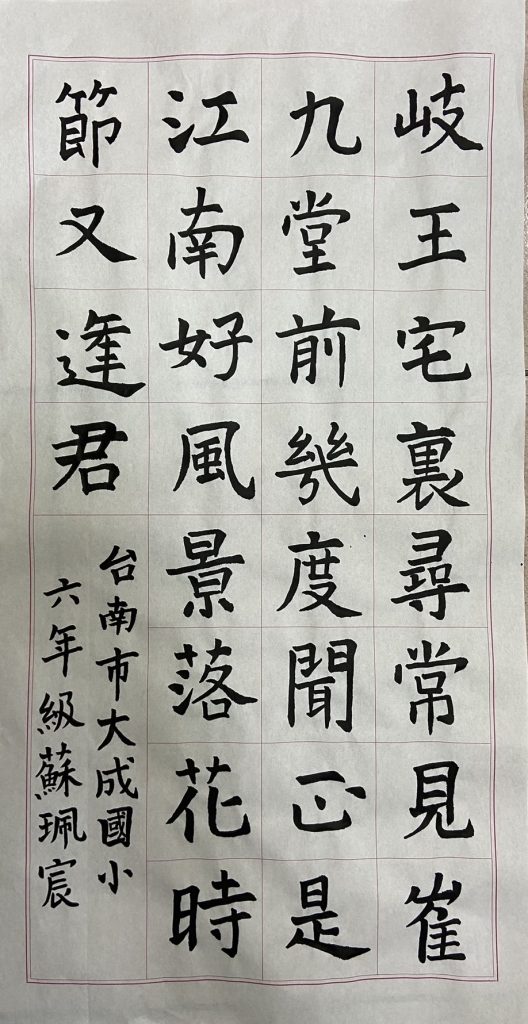 岐王宅裏尋常見崔
九堂前幾度聞正是
江南好風景落花時
節又逢君
台南市大成國小
六年級蘇珮宸